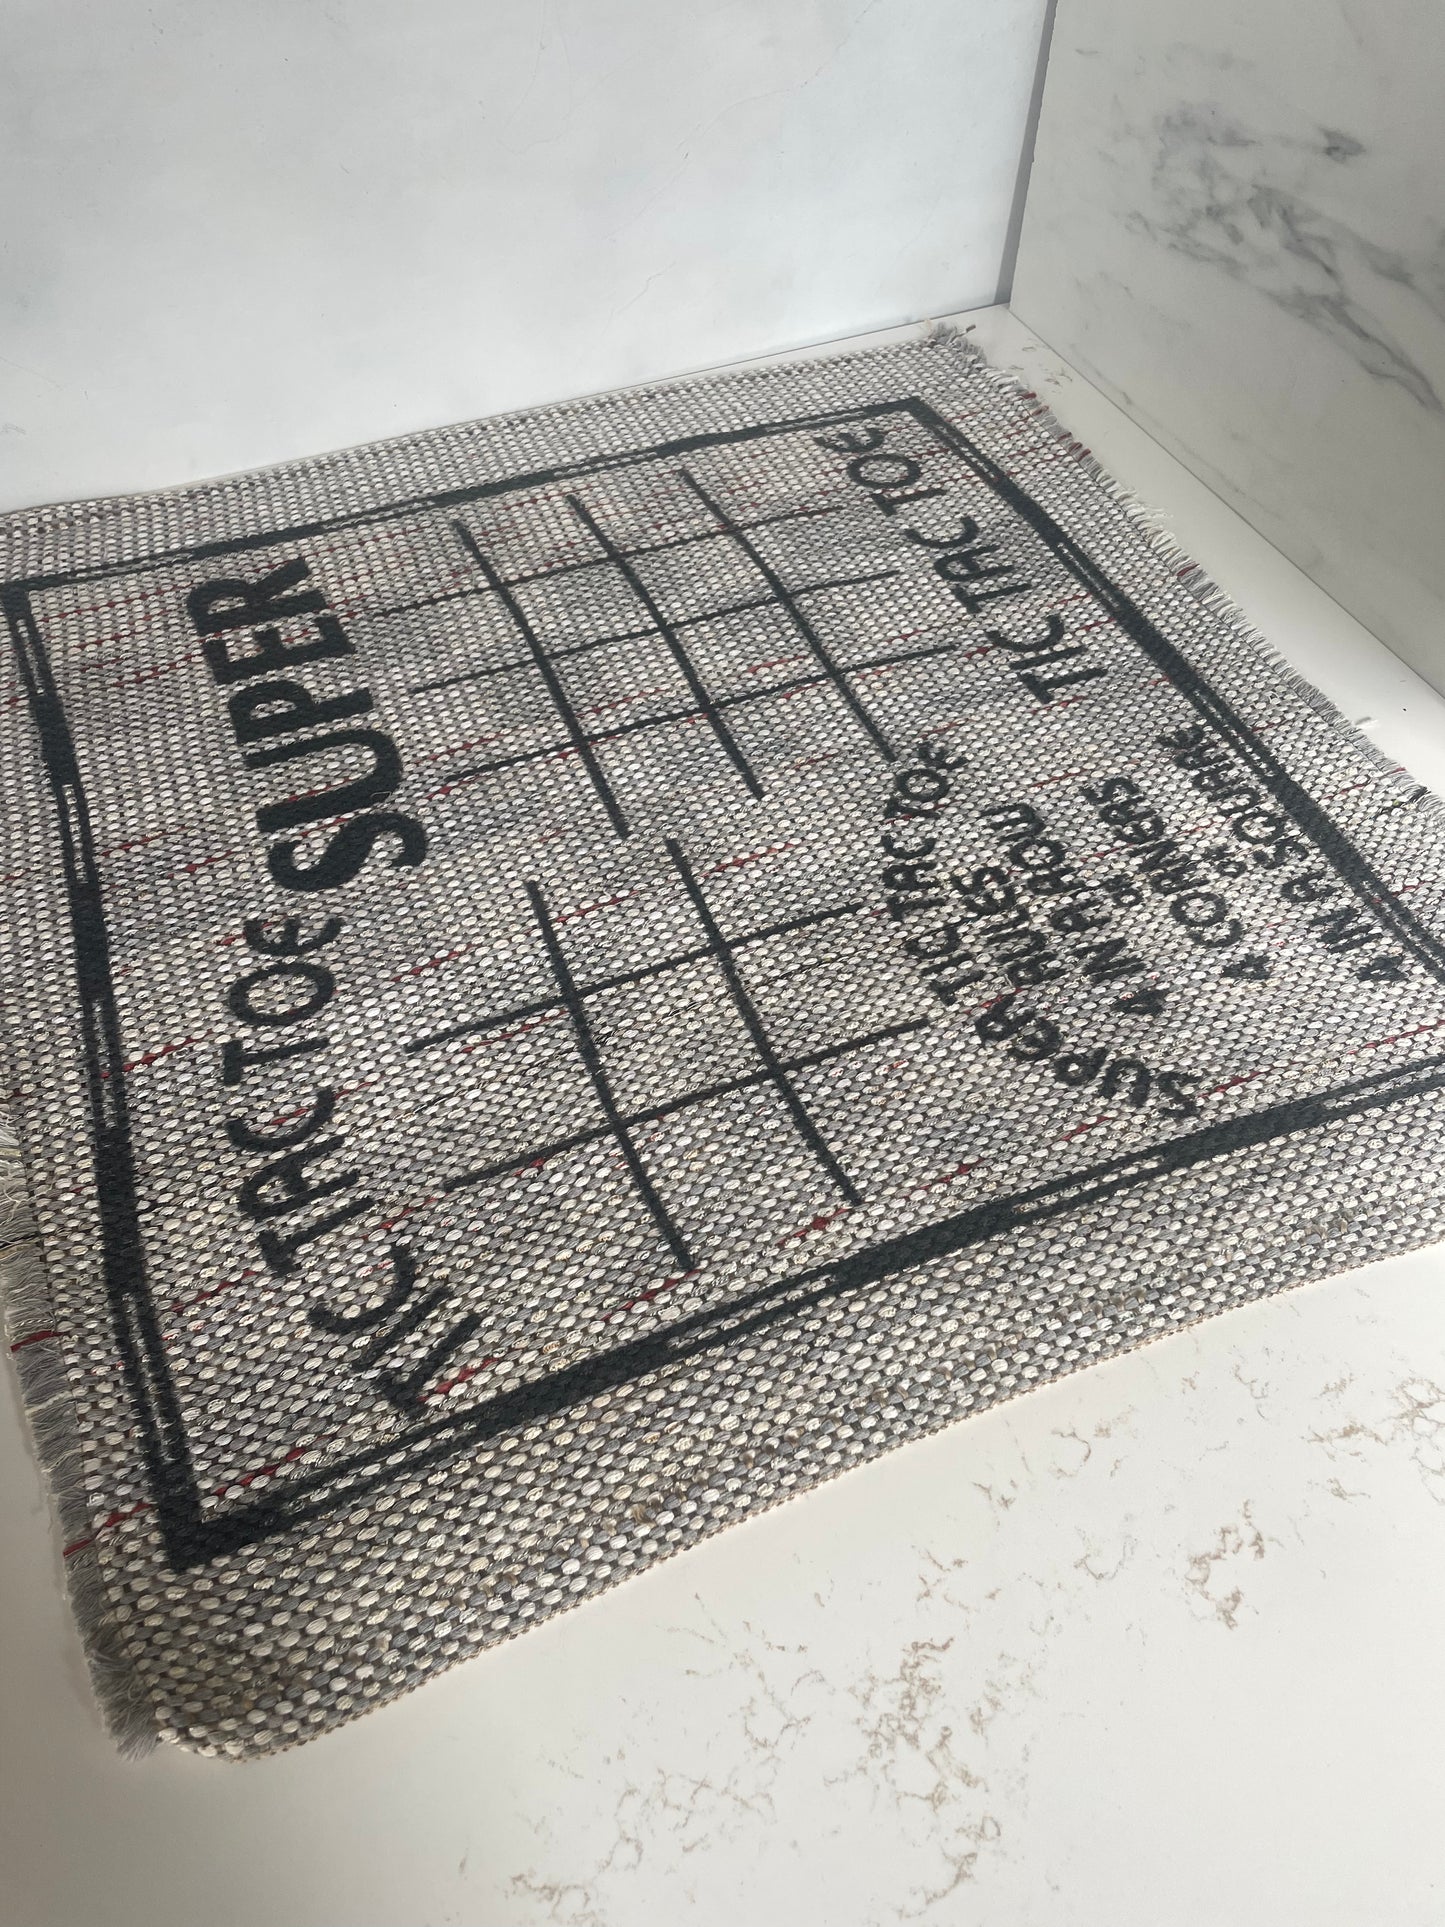 TIC TAC TOE SUPER
TIC TAC TOE
SUPER RULES
4 IN A ROW
OR
4 CORNERS
OR
4 IN A SQUARE
TIC TAC TOE